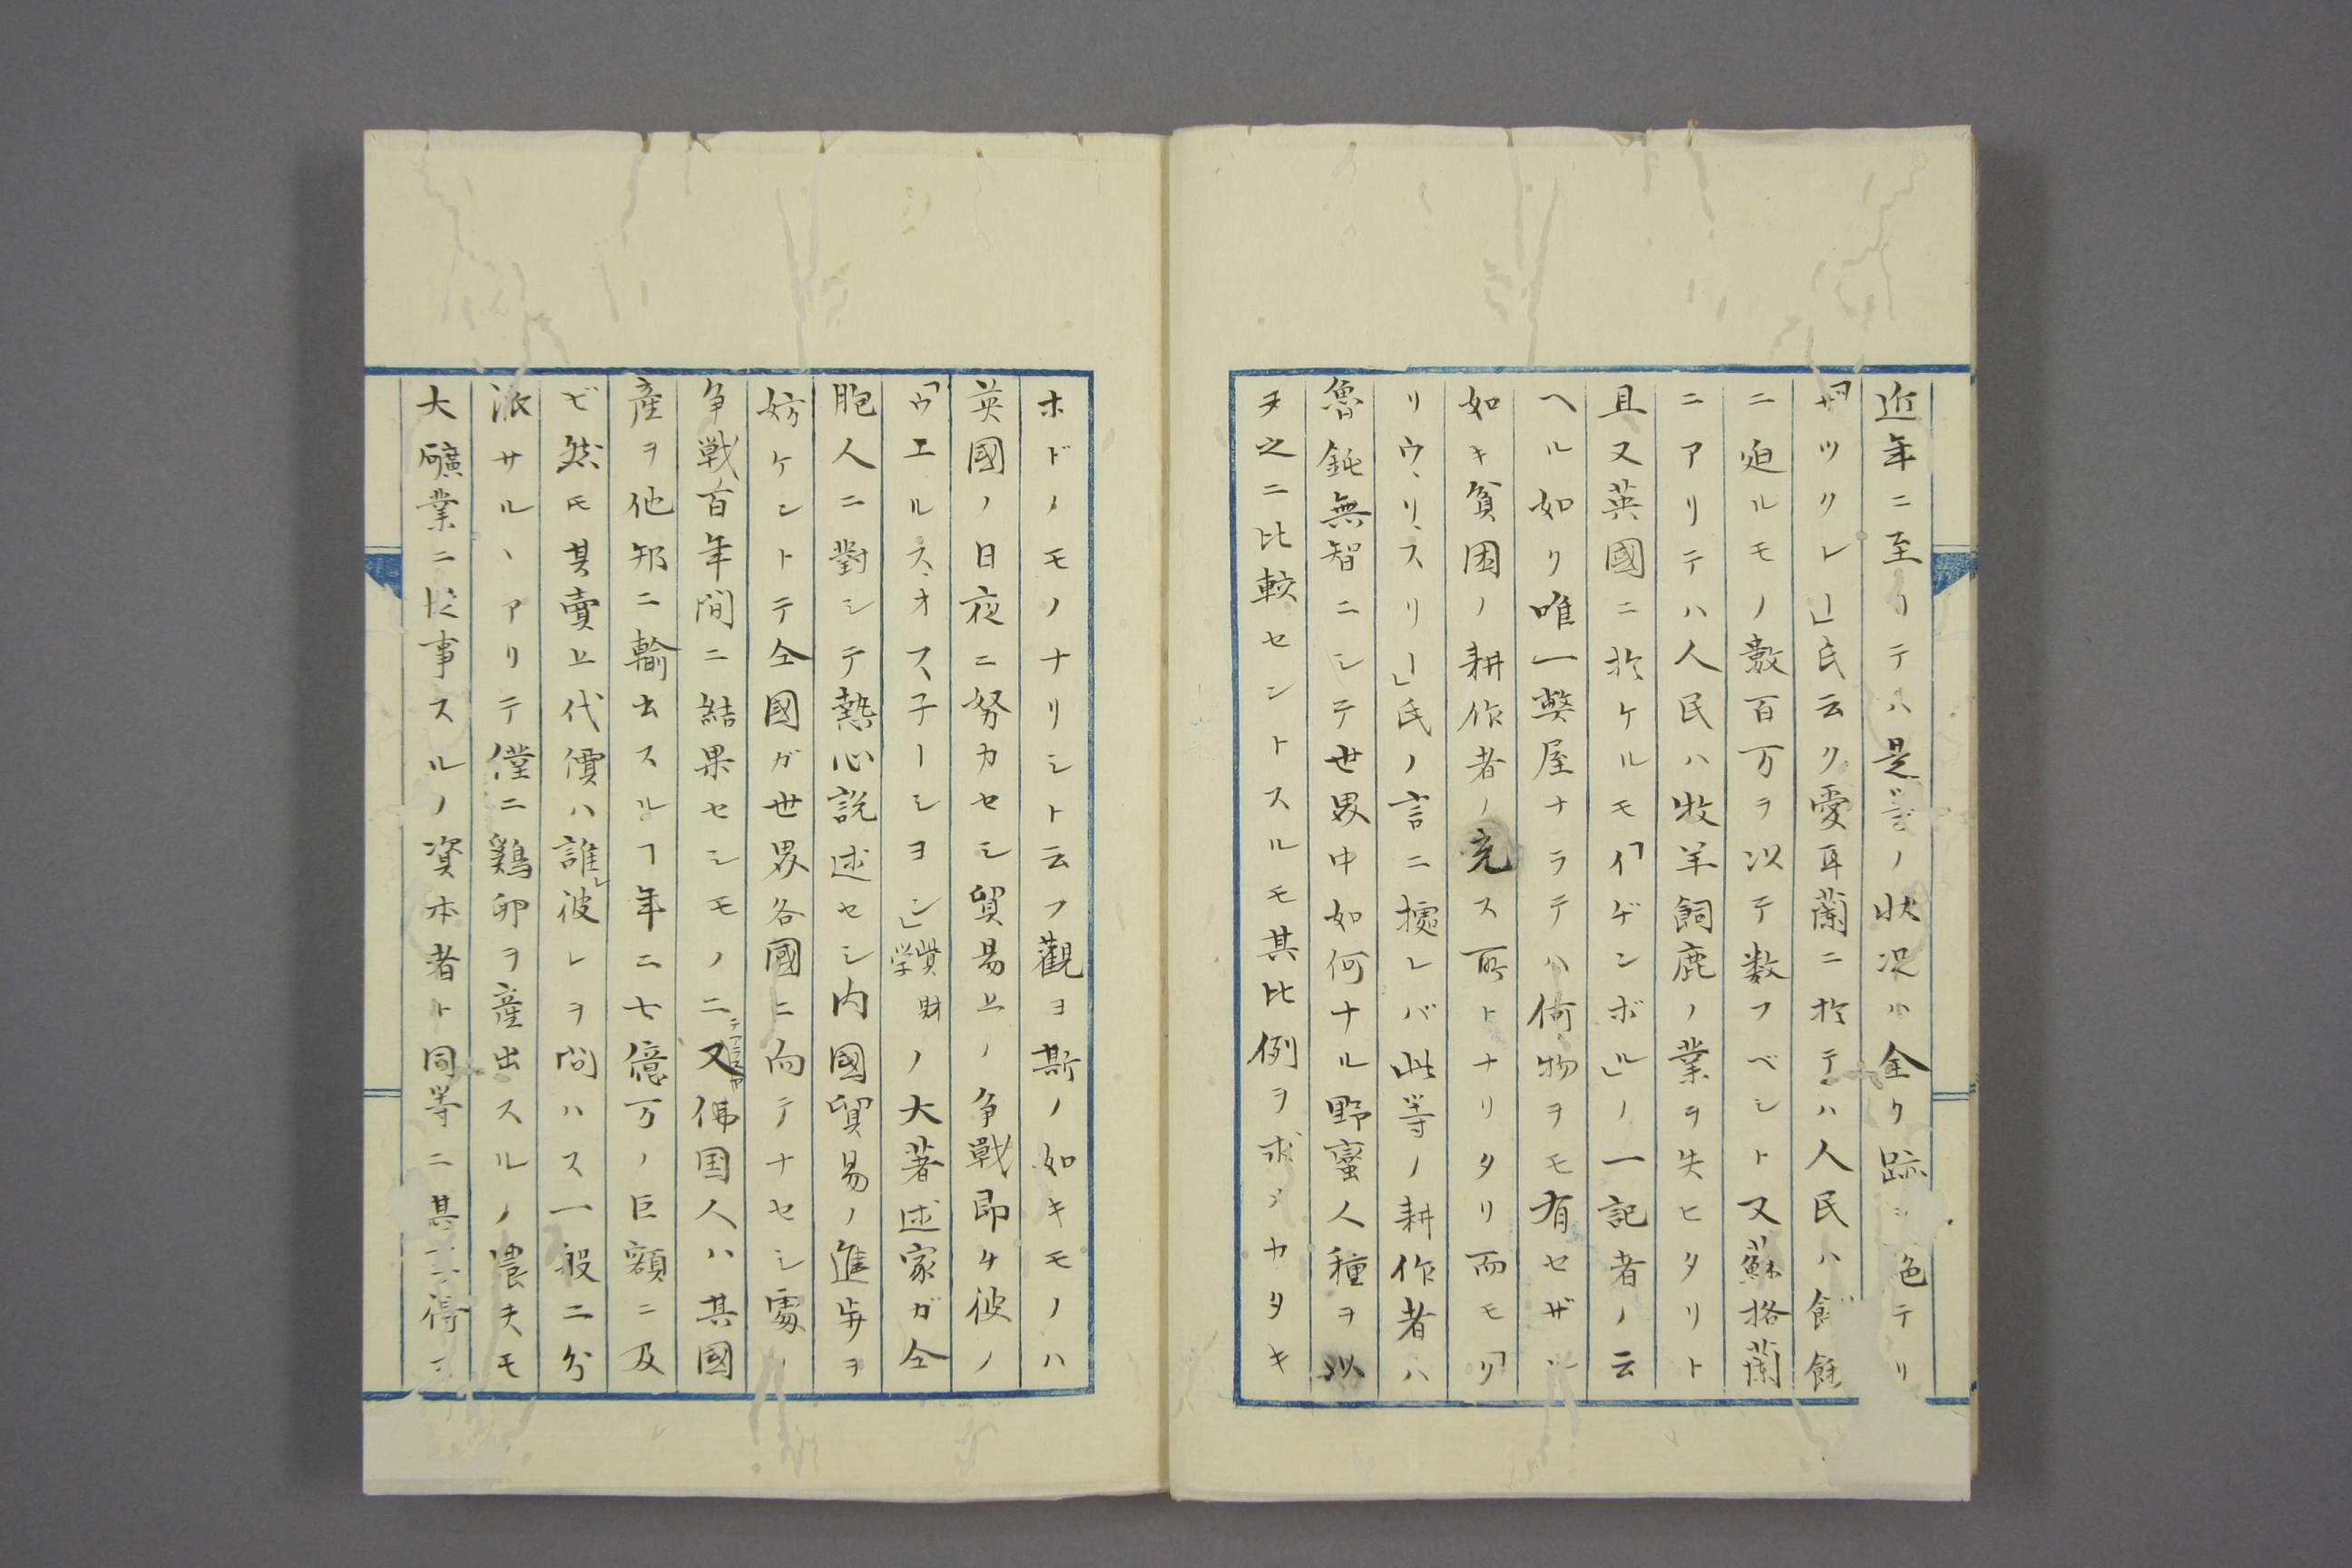 近年ニ至リテハ是等ノ状况ハ全ク跡ヲ色テリ
「サツクレー」氏云ク愛耳蘭ニ於テハ人民ハ飢餓
ニ迫ルモノ数百万ヲ以テ数フベシト又蘇格蘭
ニアリテハ人民ハ牧羊飼鹿ノ業ヲ失ヒタリト
且又英國ニ於ケルモ「イゲンボル」ノ一記者ノ云
ヘル如ク唯一弊屋ナラテハ何物ヲモ有セザル
如キ貧困ノ耕作者ノ充ス所トナリタリ而モ「リ
リウ、リ、スリー」氏ノ言ニ據レバ此等ノ耕作者ハ
魯鈍無智ニシテ世界中如何ナル野蛮人種ヲ以
テ之ニ比較セントスルモ其比例ヲ求メカタキ
ホドノモノナリシト云フ觀ヨ斯ノ如キモノハ
英國ノ日夜ニ努力セシ貿易上ノ争戰即ケ彼ノ
「ウエルス、オフ、子ーシヨン」財学ノ大著述家ガ全
胞人ニ對シテ熱心説述セシ内國貿易ノ進歩ヲ
妨ケントテ全國ガ世界各國ニ向テナセシ處ノ
争戦百年間ニ結果セシモノニテアラスヤ又佛国人ハ其國
産ヲ他邦ニ輸出スルヿ年ニ七億万ノ巨額ニ及
ビ然モ其賣上代價ハ誰レ彼レヲ問ハス一般ニ分
派サルヽアリテ僅ニ鶏卵ヲ産出スルノ農夫モ
大礦業ニ従事スルノ資本者ト同等ニ其ノ得ニ